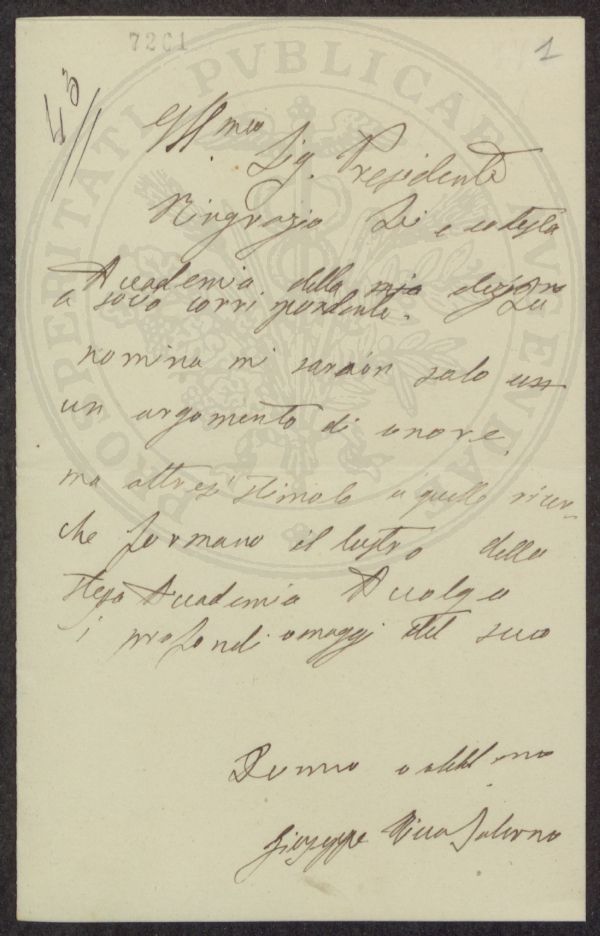 7201
1
43
Ill.mo
Sig. Presidente
Ringrazio Lei e codesta
Accademia della mia elezione
a socio corrispondente. La
nomina mi sarà non solo
un argomento di onore,
ma altresì stimolo a quelle ricer-
che formano il lustro della
stessa Accademia Accolga
i profondi omaggi del suo
Devmo obblmo
Giuseppe Ricca Salerno
PROSPERITATI PVBLICAE AVGENDAE